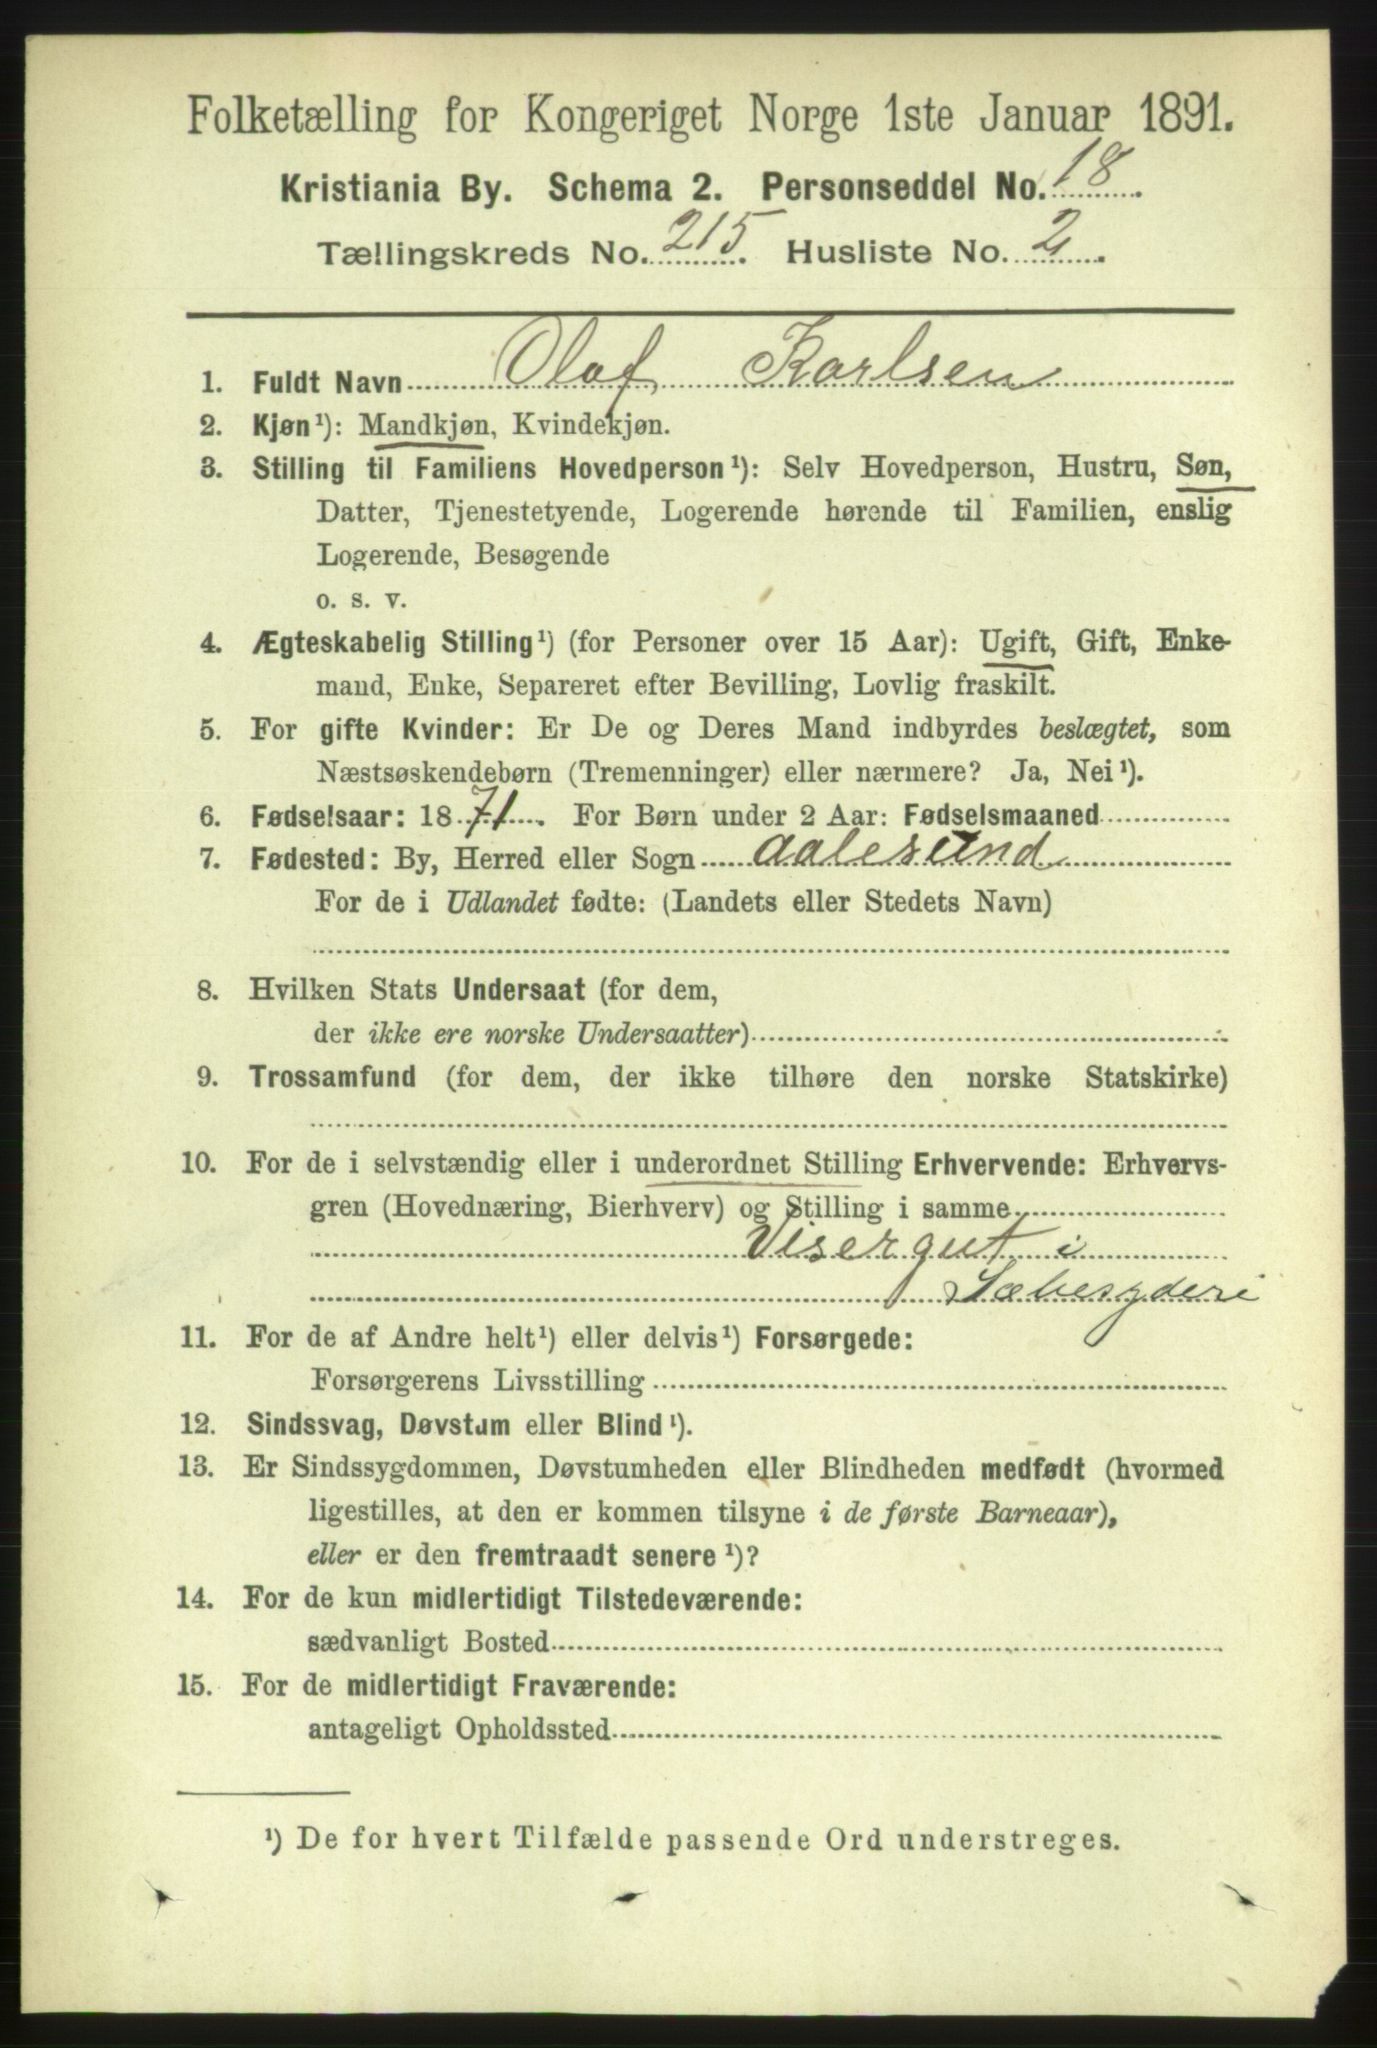 Folketælling for Kongeriget Norge 1ste Januar 1891.
Kristiania By. Schema 2. Personseddel No. 18.
Tællingskreds No. 215. Husliste No. 2.
1. Fuldt Navn Olaf Karlsen
2. Kjøn¹): Mandkjøn, Kvindekjøn.
3. Stilling til Familiens Hovedperson¹): Selv Hovedperson, Hustru, Søn,
Datter, Tjenestetyende, Logerende hørende til Familien, enslig
Logerende, Besøgende
o. s. v.
4. Ægteskabelig Stilling¹) (for Personer over 15 Aar): Ugift, Gift, Enke-
mand, Enke, Separeret efter Bevilling, Lovlig fraskilt.
5. For gifte Kvinder: Er De og Deres Mand indbyrdes beslægtet, som
Næstsøskendebørn (Tremenninger) eller nærmere? Ja, Nei¹).
6. Fødselsaar: 1871. For Børn under 2 Aar: Fødselsmaaned
7. Fødested: By, Herred eller Sogn Aalesund
For de i Udlandet fødte: (Landets eller Stedets Navn)
8. Hvilken Stats Undersaat (for dem,
der ikke ere norske Undersaatter)
9. Trossamfund (for dem, der ikke tilhøre den norske Statskirke)
10. For de i selvstændig eller i underordnet Stilling Erhvervende: Erhvervs-
gren (Hovednæring, Bierhverv) og Stilling i samme
Visergut i
Sæbesyderi
11. For de af Andre helt¹) eller delvis¹) Forsørgede:
Forsørgerens Livsstilling
12. Sindssvag, Døvstum eller Blind¹).
13. Er Sindssygdommen, Døvstumheden eller Blindheden medfødt (hvormed
ligestilles, at den er kommen tilsyne i de første Barneaar),
eller er den fremtraadt senere¹)?
14. For de kun midlertidigt Tilstedeværende:
sædvanligt Bosted
15. For de midlertidigt Fraværende:
antageligt Opholdssted
¹) De for hvert Tilfælde passende Ord understreges.